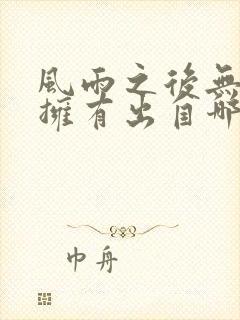 風雨之後無
擁有出自哪
巾舟